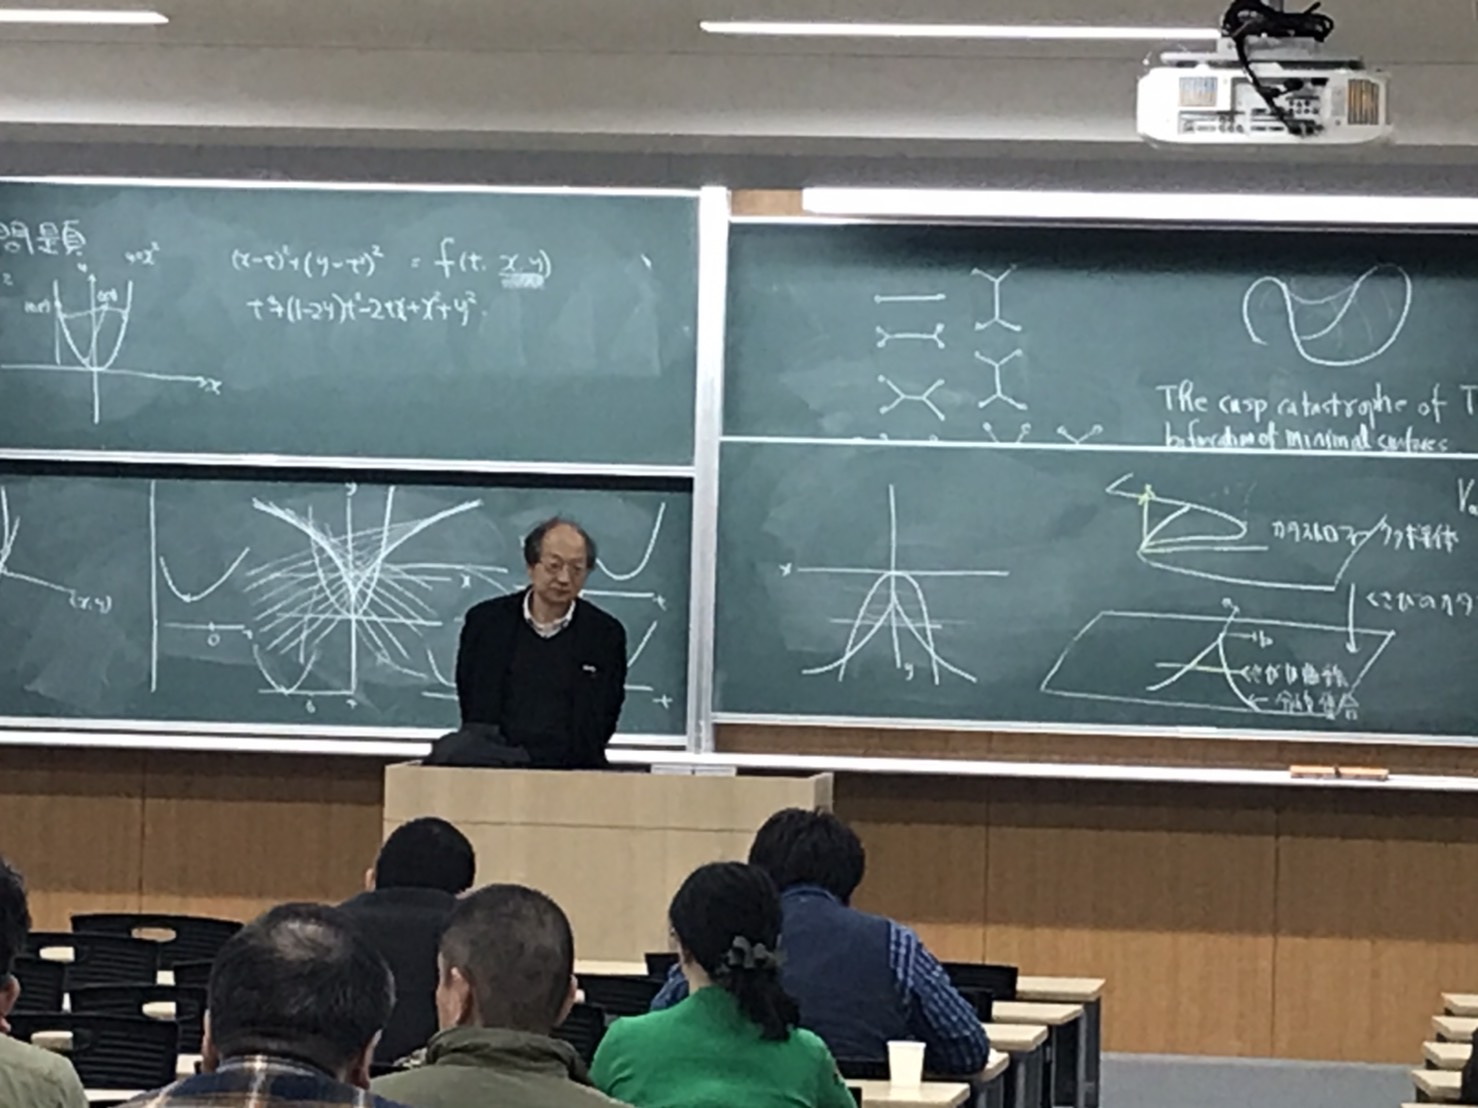 問題
y=x²
(x-t)²+(y-t²)² = f(t, x, y)
t⁴+(1-2y)t²-2tx+x²+y²
x
The cusp catastrophe of T
bifurcation of minimal surfaces
y
x
(x,y)
0
x
y
t
t
カタストロフィー
くさびのカタ
分岐集合